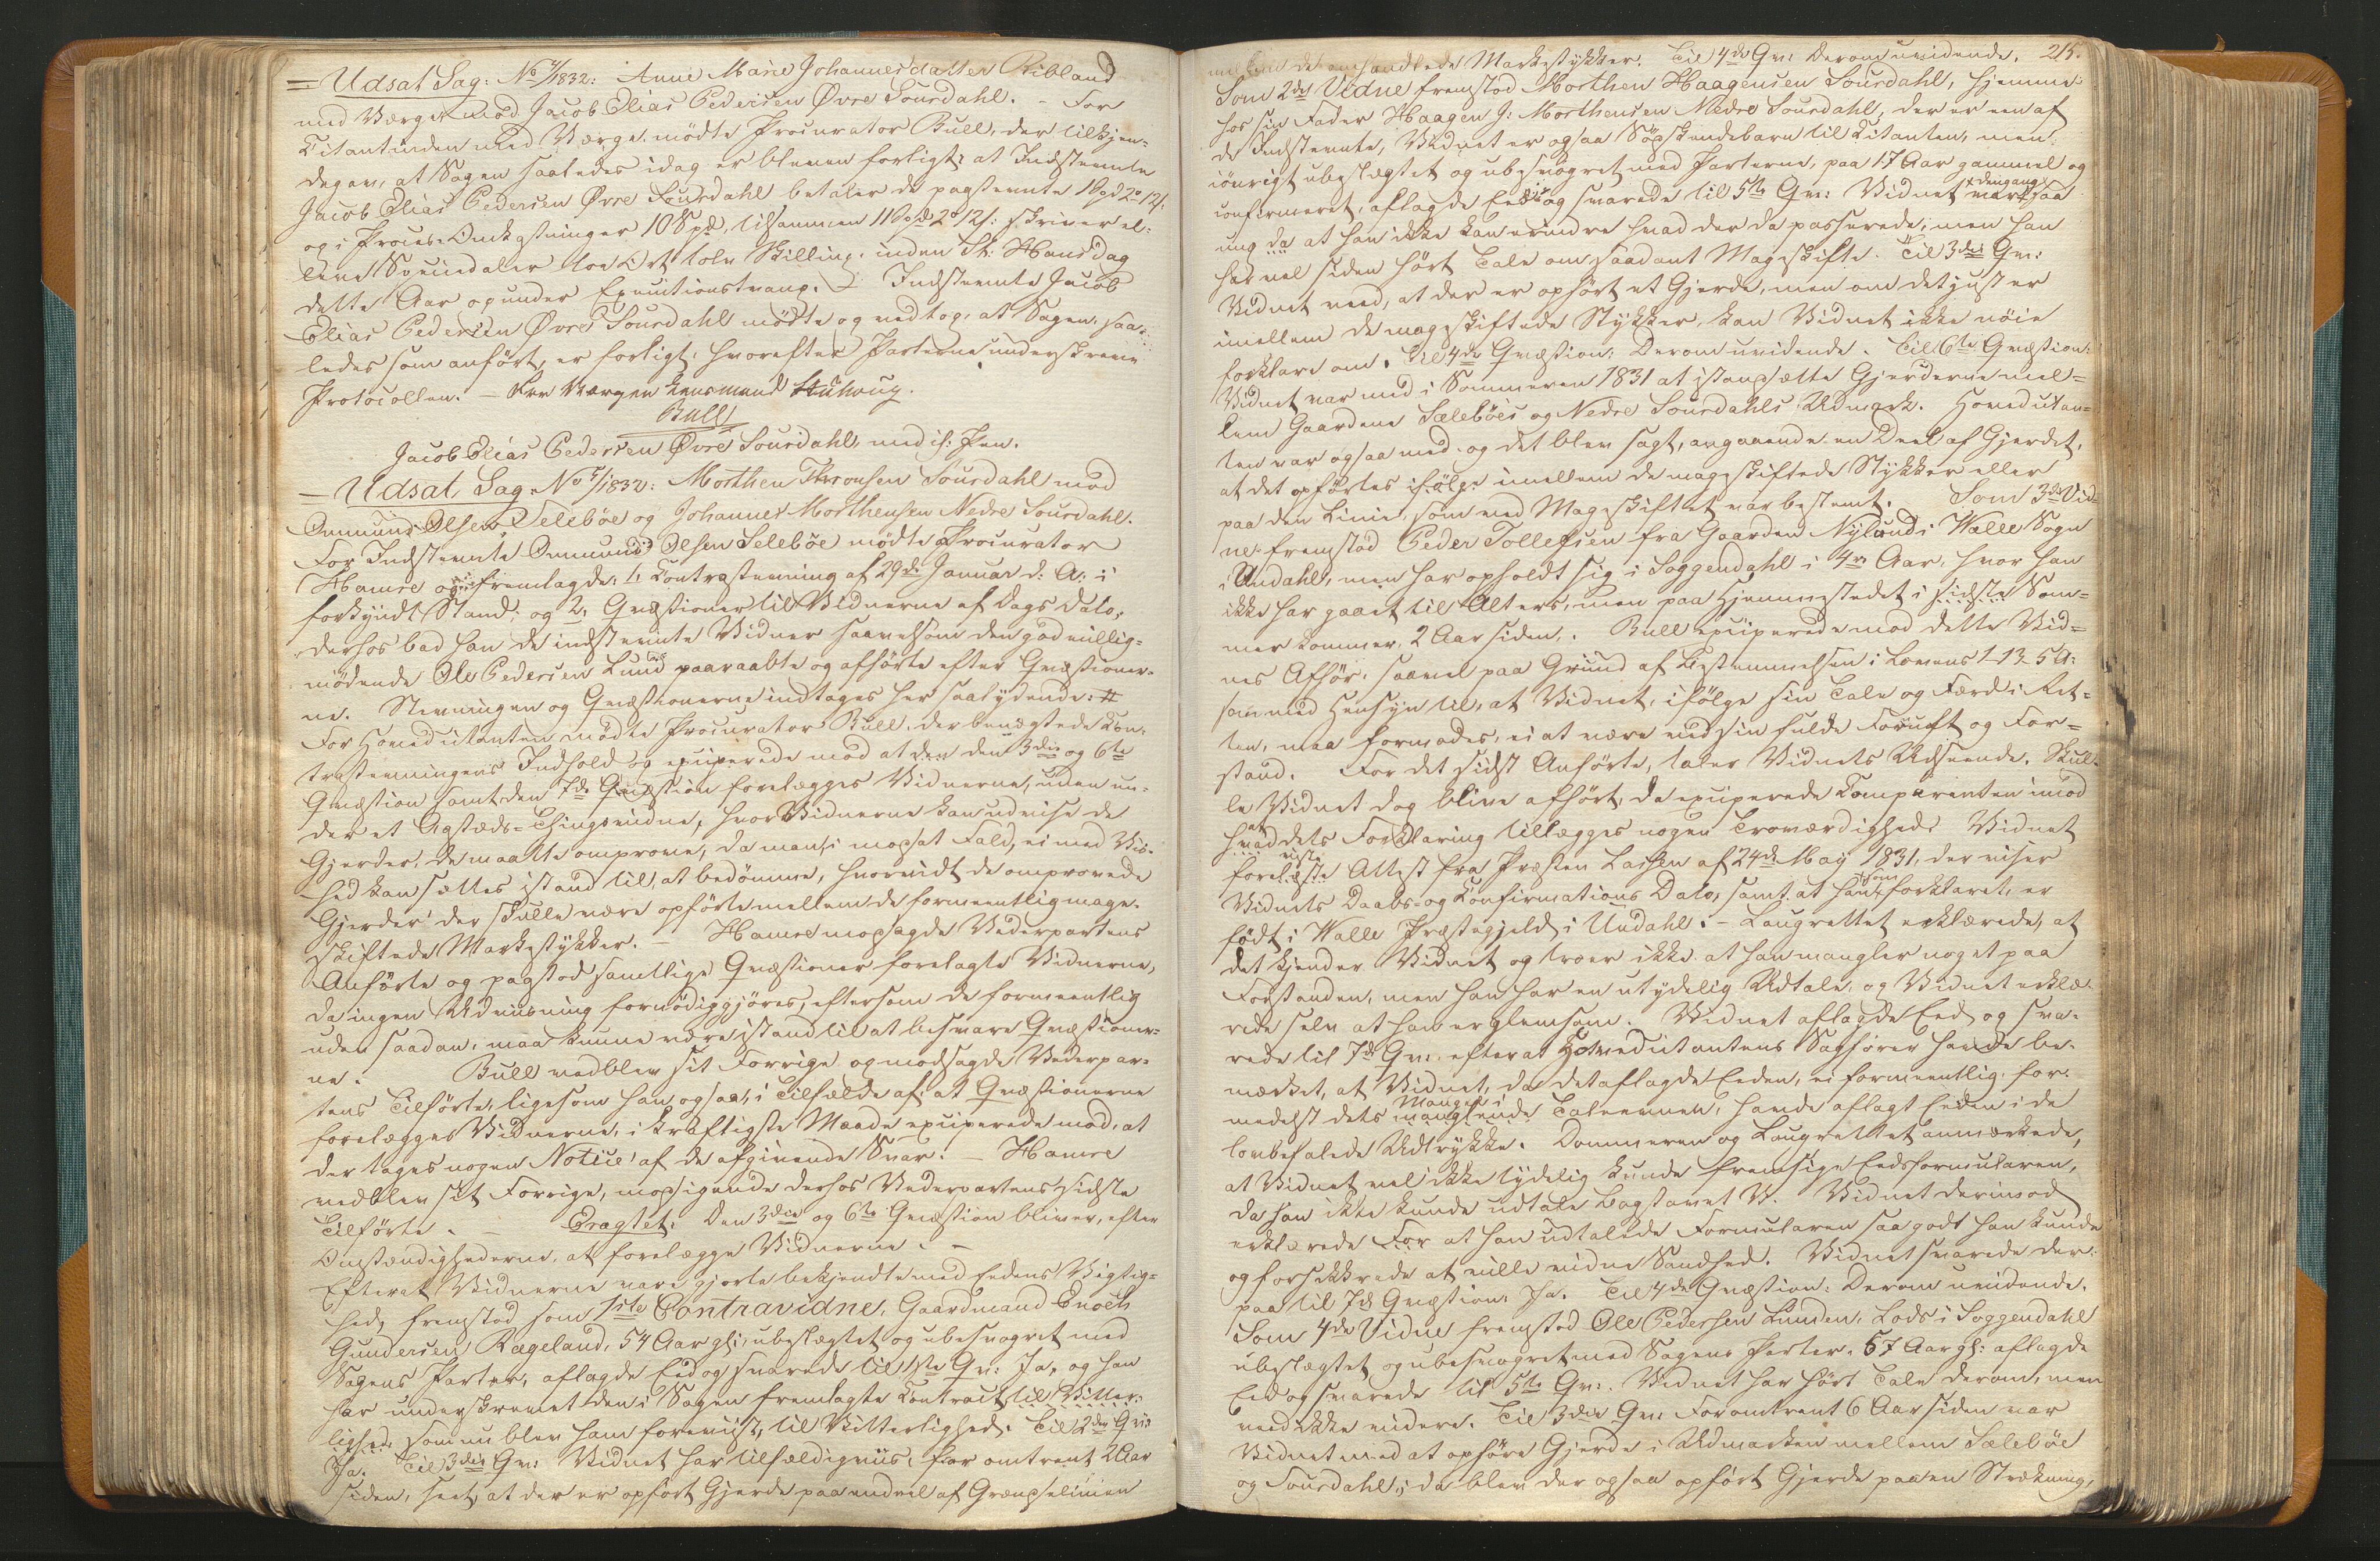 = Udsat Sag: No 4/1832: Anne Marie Johannesdatter Ribland
med Værge mod Jacob Elias Pedersen Øvre Sourdahl. - For
Citantinden med Værge mödte Procurator Bull, der tilkjen-
degav, at Sagen saaledes idag er bleven forligt: at Indstevnte
Jacob Elias Pedersen Øvre Sourdahl betaler de paastevnte 1 Spd 2 o 12 s:
og i Proces-Omkostninger 10 Spd, tilsammen 11 Spd 2 o 12 s: skriver el-
leve Speciedaler too Ort tolv Skilling, inden St: Hansdag
dette Aar og under Executionstvang. - Indstevnte Jacob
Elias Pedersen Øvre Sourdahl mödte og vedtog, at Sagen, saa-
ledes som anfört, er forligt, hvorefter Parterne underskreve
Protocollen. - For Værgen Lensmand Stuhoug.
Bull
Jacob Elias Pedersen Øvre Sourdahl, med ih: Pen.
- Udsat Sag: No 5/1832: Morthen Thronsen Sourdahl mod
Ommund Olsen Selebøe og Johannes Morthensen Nedre Sourdahl.
For Indstevnte Ommund Olsen Selebøe mödte Procurator
Hamre og fremlagde: 1, Contrastevning af 29de Januar d: A: i
forkyndt Stand; og 2, Qvæstioner til Vidnerne af Dags Dato;
derhos bad han de indstevnte Vidner saavelsom den godvillig-
mödende Ole Pedersen Lund paaraabte og afhörte efter Qvæstioner-
ne. Stevningen og Qvæstionerne indtages her saalydende: #
For Hovedcitanten mödte Procurator Bull, der benægtede Con-
trastevningens Indhold og exciperede mod at den den 3die og 6te
Qvæstion samt den 7de Qvæstion forelægges Vidnerne, uden un-
der et Aasteds-Thingsvidne, hvor Vidnerne kan udvise de
Gjerder, de maatte omprove, da man, i modsat Fald, ei med Vis-
hed kan sættes istand til, at bedömme, hvorvidt de omprovede
Gjerder der skulle være opförte mellem de formeentlig mage-
skiftede Markestykker. - Hamre modsagde Vederpartens
Anförte og paastod samtlige Qvæstioner forelagte Vidnerne,
da ingen Udviisning fornödiggjöres, eftersom de formeentlig
uden saadan, maa kunne være istand til at besvare Qvæstioner-
ne. Bull vedblev sit Forrige og modsagde Vederpar-
tens Tilförte, ligesom han ogsaa, i Tilfælde af, at Qvæstionerne
forelægges Vidnerne, i kraftigste Maade exciperede mod, at
der tages nogen Notice af de afgivende Svar. - Hamre
vedblev sit Forrige, modsigende derhos Vederpartens sidste
Tilförte. - Eragtet: Den 3die og 6te Qvæstion bliver, efter
Omstændighederne, at forelægge Vidnerne. -
Efterat Vidnerne vare gjorte bekjendte med Eedens Vigtig-
hed, fremstod som 1ste Contravidne, Gaardmand Enoch
Gundersen Rægeland, 54 Aar gl:, ubeslægtet og ubesvogret med
Sagens Parter, aflagde Eed og svarede til 1ste Qv: Ja, og han
har underskrevet den i Sagen fremlagte Contract till Vitter-
lighed, som nu blev ham foreviist, til Vitterlighed. Til 2den Qv:
Ja. Til 3die Qv: Vidnet har tilfældigviis, for omtrent 2 Aar
siden, seet, at der er opfört Gjerde paa endeel af Grændselinien
215.
mellem de omhandlede Markestykker. Til 4de Qv: Derom uvidende.
Som 2det Vidne fremstod Morthen Haagensen Sourdahl, hjemme
hos sin Fader Haagen J: Morthensen Nedre Sourdahl, der er een af
de Indstevnte, Vidnet er ogsaa Södskendebarn til Citanten, men
iövrigt ubeslægtet og ubesvogret med Parterne, paa 17 Aar gammel og
confirmeret, aflagde Eed og svarede til 5te Qv: Vidnet var dengang saa
ung da at han ikke kan erindre hvad der da passerede, men han
har vel siden hört Tale om saadant Mageskifte. Til 3die Qv:
Vidnet veed, at der er opfört et Gjerde, men om det just er
imellem de mageskiftede Stykker, kan Vidnet ikke nöie
forklare om. Til 4de Qvæstion: Derom uvidende. Til 6te Qvæstion:
Vidnet var med i Sommeren 1831 at istandsætte Gjerderne mel-
lem Gaardene Selebøes og Nedre Sourdahls Udmark. Hovedcitan-
ten var ogsaa med og det blev sagt, angaaende en Deel af Gjerdet,
at det opförtes ifölge imellem de mageskiftede Stykker eller
paa den Linie, som ved Mageskiftet var bestemt. Som 3die Vid-
ne fremstod Peder Tollefsen fra Gaarden Nylund i Walle Sogn
i Undahl, men har opholdt sig i Soggendahl i 4re Aar, hvor han
ikke har gaaet til Alters, men paa Hjemmestedet i sidste Som-
mer kommer, 2 Aar siden. Bull exciperede mod dette Vid-
nes Afhör, saavel paa Grund af Bestemmelsen i Lovens 1-13-5 A:
som med Hensyn til, at Vidnet, ifölge sin Tale og Færd i Ret-
ten, maa formodes, ei at være ved sin fulde Fornuft og For-
stand. For det sidst Anförte, taler Vidnets Udseende. Skul-
le Vidnet dog blive afhört, da exciperede Comparenten imod
at hvad dets Forklaring tillægges nogen Troværdighed. Vidnet
foreviste Attest fra Præsten Lassen af 24de May 1831, der viser
Vidnets Daabs- og Confirmations Dato, samt at han som forklaret, er
födt i Walle Præstegjeld i Undahl. - Laugrettet erklærede, at
det kjender Vidnet og troer ikke at han mangler noget paa
Forstanden, men han har en utydelig Udtale, og Vidnet erklæ-
rede selv at han er glemsom. Vidnet aflagde Eed og sva-
rede til 7de Qv: efterat Hovedcitantens Sagförer havde be-
mærket, at Vidnet, da det aflagde Eeden, ei formeentlig, for-
medelst dets Mangel i manglende Taleevnen, havde aflagt Eeden i de
lovbefalede Udtrykke. Dommeren og Laugrettet anmærkede,
at Vidnet vel ikke tydelig kunde fremsige Eedsformularen,
da han ikke kunde udtale Bogstavet V. Vidnet derimod
erklærede For at han udtalede Formularen saa godt han kunde
og forsikkrede at ville vidne Sandhed. Vidnet svarede der-
paa til 7de Qvæstion: Ja. Til 4de Qvæstion: Derom uvidende.
Som 4de Vidne fremstod Ole Pedersen Lunden, Lods i Soggendahl
ubeslægtet og ubesvogret med Sagens Parter, 57 Aar gl: aflagde
Eed og svarede til 5te Qv: Vidnet har hört Tale derom, men
veed ikke videre. Til 3die Qv: For omtrent 6 Aar siden var
Vidnet med at opföre Gjerde i Udmarken mellem Selebøe
og Sourdahl; da blev der ogsaa opfört Gjerde paa en Strækning,